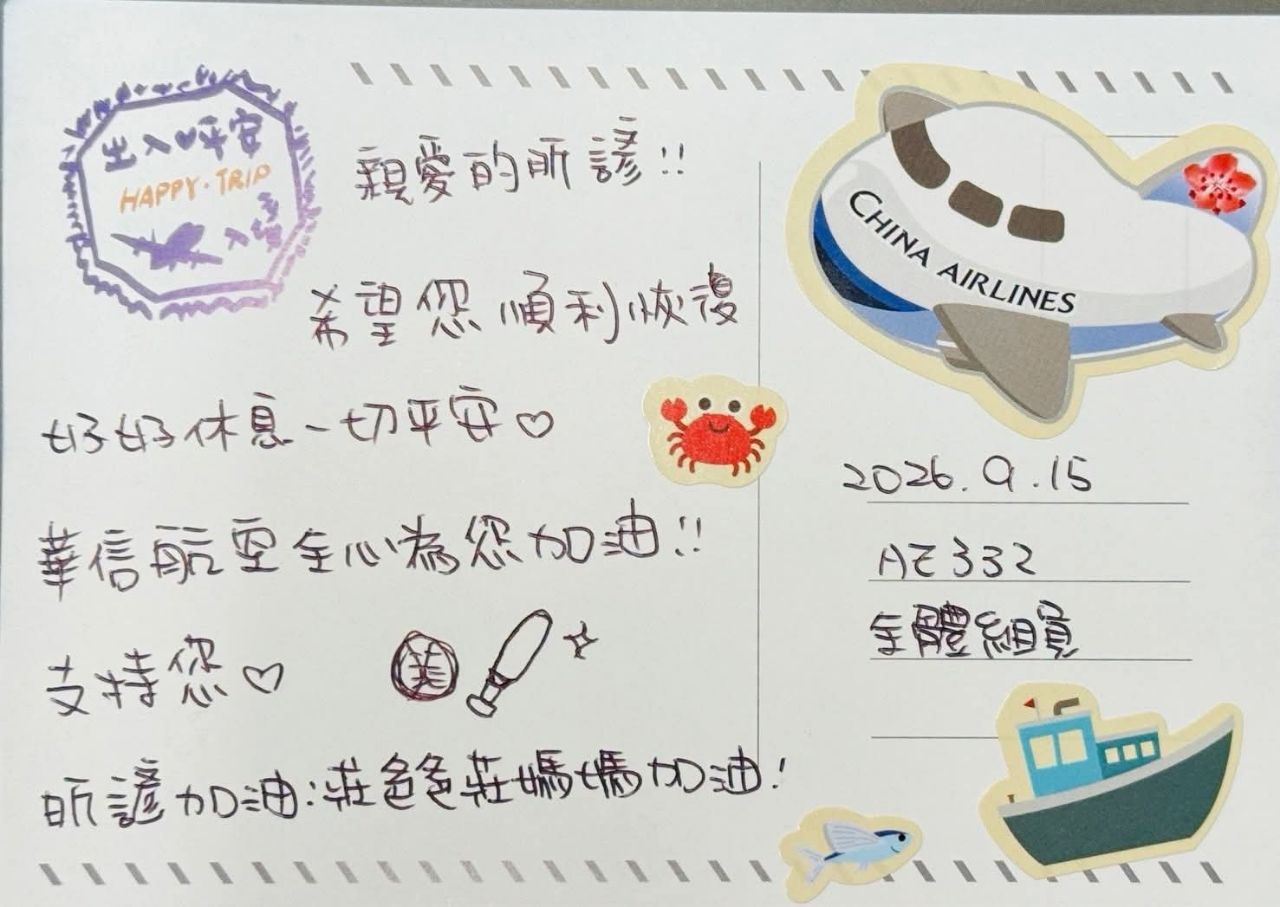 出入♥平安
HAPPY·TRIP
入境
親愛的昕諺!!
希望您順利恢復
好好休息一切平安♡
華信航空全心為您加油!!
支持您♡
昕諺加油!莊爸爸莊媽媽加油!
CHINA AIRLINES
2026.9.15
AE332
全體組員